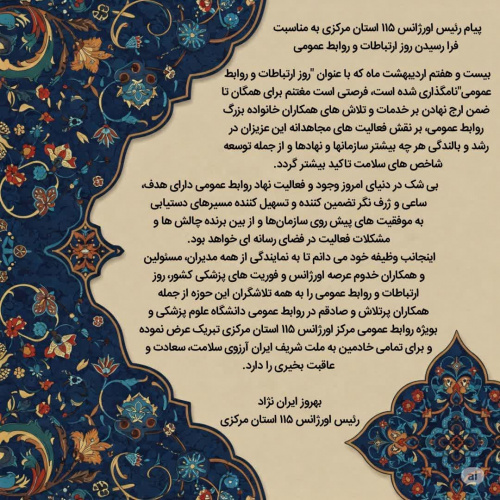 پیام رئیس اورژانس ۱۱۵ استان مرکزی به مناسبت
فرا رسیدن روز ارتباطات و روابط عمومی
بیست و هفتم اردیبهشت ماه که با عنوان "روز ارتباطات و روابط
عمومی"نامگذاری شده است، فرصتی است مغتنم برای همگان تا
ضمن ارج نهادن بر خدمات و تلاش های همکاران خانواده بزرگ
روابط عمومی، بر نقش فعالیت های مجاهدانه این عزیزان در
رشد و بالندگی هر چه بیشتر سازمانها و نهادها و از جمله توسعه
شاخص های سلامت تاکید بیشتر گردد.
بی شک در دنیای امروز وجود و فعالیت نهاد روابط عمومی دارای هدف،
ساعی و ژرف نگر تضمین کننده و تسهیل کننده مسیرهای دستیابی
به موفقیت های پیش روی سازمان‌ها و از بین برنده چالش ها و
مشکلات فعالیت در فضای رسانه ای خواهد بود.
اینجانب وظیفه خود می دانم تا به نمایندگی از همه مدیران، مسئولین
و همکاران خدوم عرصه اورژانس و فوریت های پزشکی کشور، روز
ارتباطات و روابط عمومی را به همه تلاشگران این حوزه از جمله
همکاران پرتلاش و صادقم در روابط عمومی دانشگاه علوم پزشکی و
بویژه روابط عمومی مرکز اورژانس ۱۱۵ استان مرکزی تبریک عرض نموده
و برای تمامی خادمین به ملت شریف ایران آرزوی سلامت، سعادت و
عاقبت بخیری را دارد.
بهروز ایران نژاد
رئیس اورژانس ۱۱۵ استان مرکزی